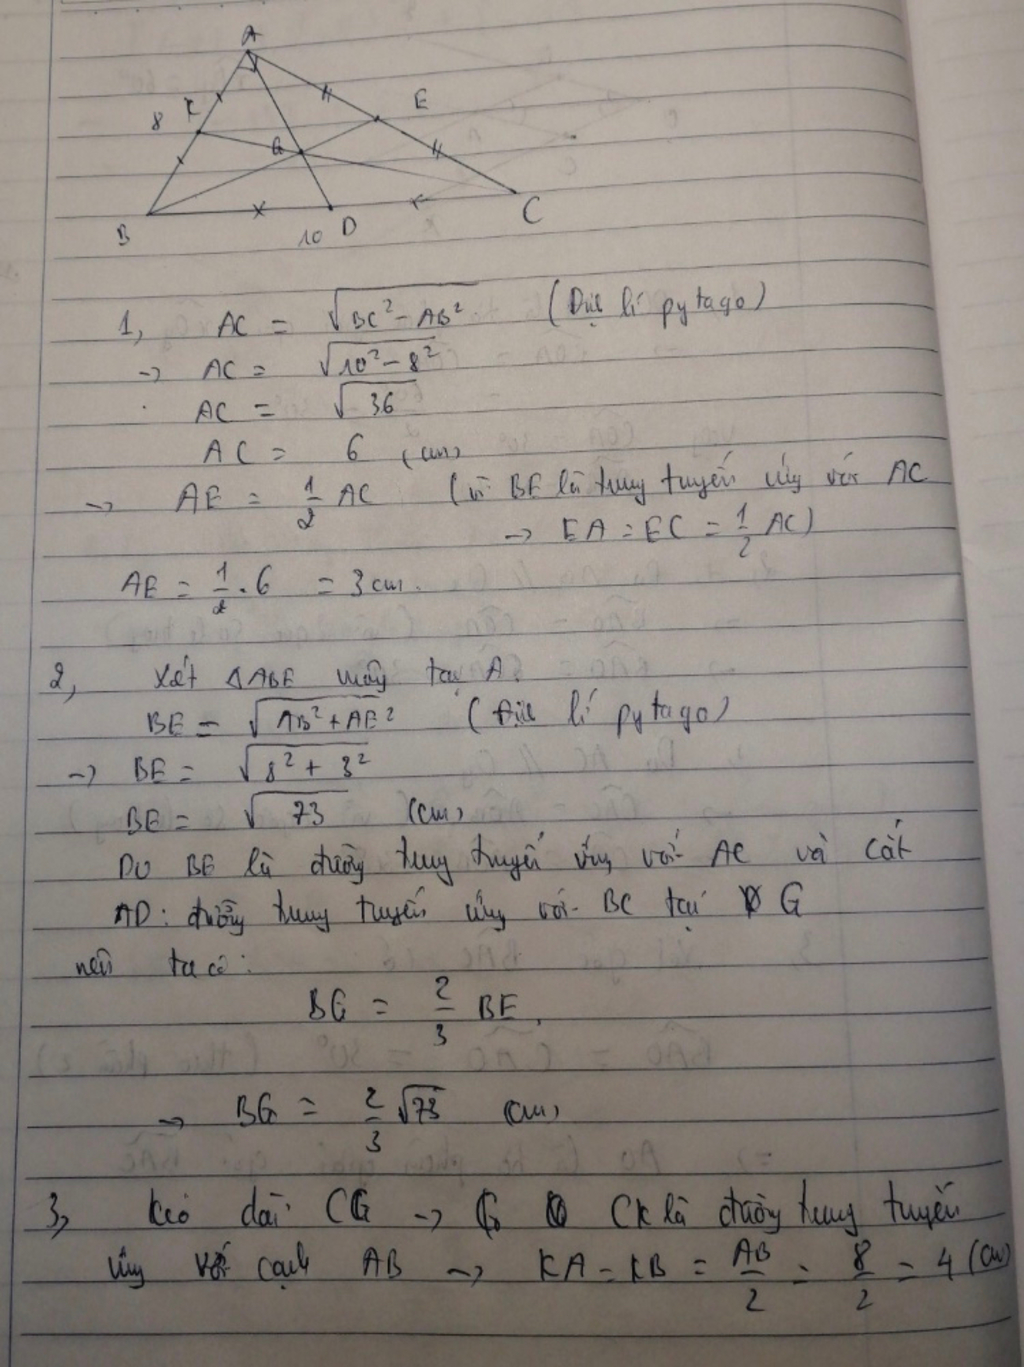 A
K
E
8
G
B
10
D
C
1, AC = √BC² - AB² (Định lí pytago)
→ AC = √10² - 8²
AC = √36
AC = 6 (cm)
→ AE = 1/2 AC (vì BE là trung tuyến ứng với AC
→ EA = EC = 1/2 AC)
AE = 1/2 . 6 = 3cm.
2, Xét ΔABE vuông tại A.
BE = √AB² + AE² (Định lí pytago)
→ BE = √8² + 3²
BE = √73 (cm)
Do BE là đường trung tuyến ứng với AC và cắt
AD: đường trung tuyến ứng với BC tại G
nên ta có:
BG = 2/3 BE.
→ BG = 2/3 √73 (cm)
3, Kéo dài CG → CK là đường trung tuyến
ứng với cạnh AB → KA = KB = AB/2 = 8/2 = 4 (cm)